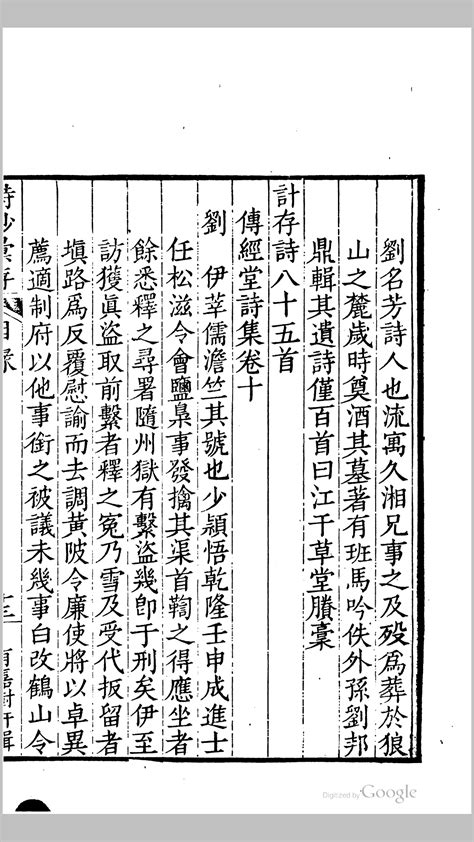 劉名芳詩人也流寓久湘兄事之及歿爲葬於狼
山之麓歲時奠酒其墓著有班馬吟佚外孫劉邦
鼎輯其遺詩僅百首曰江干草堂賸稾
計存詩八十五首
傳經堂詩集卷十
劉 伊莘儒澹竺其號也少穎悟乾隆壬申成進士
任松滋令會鹽梟事發擒其渠首鞫之得應坐者
餘悉釋之尋署隨州獄有繫盜幾卽于刑矣伊至
訪獲眞盜取前繫者釋之冤乃雪及受代扳留者
塡路爲反覆慰諭而去調黃陂令廉使將以卓異
薦適制府以他事銜之被議未幾事白改鶴山令
詩鈔彙存 目錄 十三
Digitized by Google